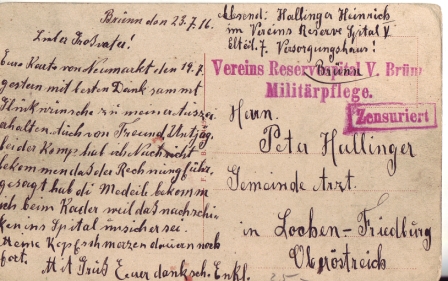 Brünn den 23.7.16.
Lieber Großvater!
Eure Karte von Neumarkt den 19.7.
gestern mit besten Dank sammt
Glückwünsche zu meiner Ausze
erhalten. Auch von Freund
bei der Komp. hab ich Nachricht
bekommen das der Rechnungsführ.
gesagt hat di Medeil. bekomm
ich beim Kader weil das nachschi
ken ins Spital unsicher sei.
Meine Kopfschmerzen dauern noch
fort.
Mit Gruß Euer danksch. Enkl.
Absend: Hallinger Heinrich
im Vereins Reserve Spital V.
Abteil. 7. Versorgungshaus!
Brünn
Vereins Reservespital V. Brünn
Militärpflege.
Zensuriert
Herrn
Peter Hallinger
Gemeinde Arzt.
in Lochen-Friedburg
Oberöstreich
25.-